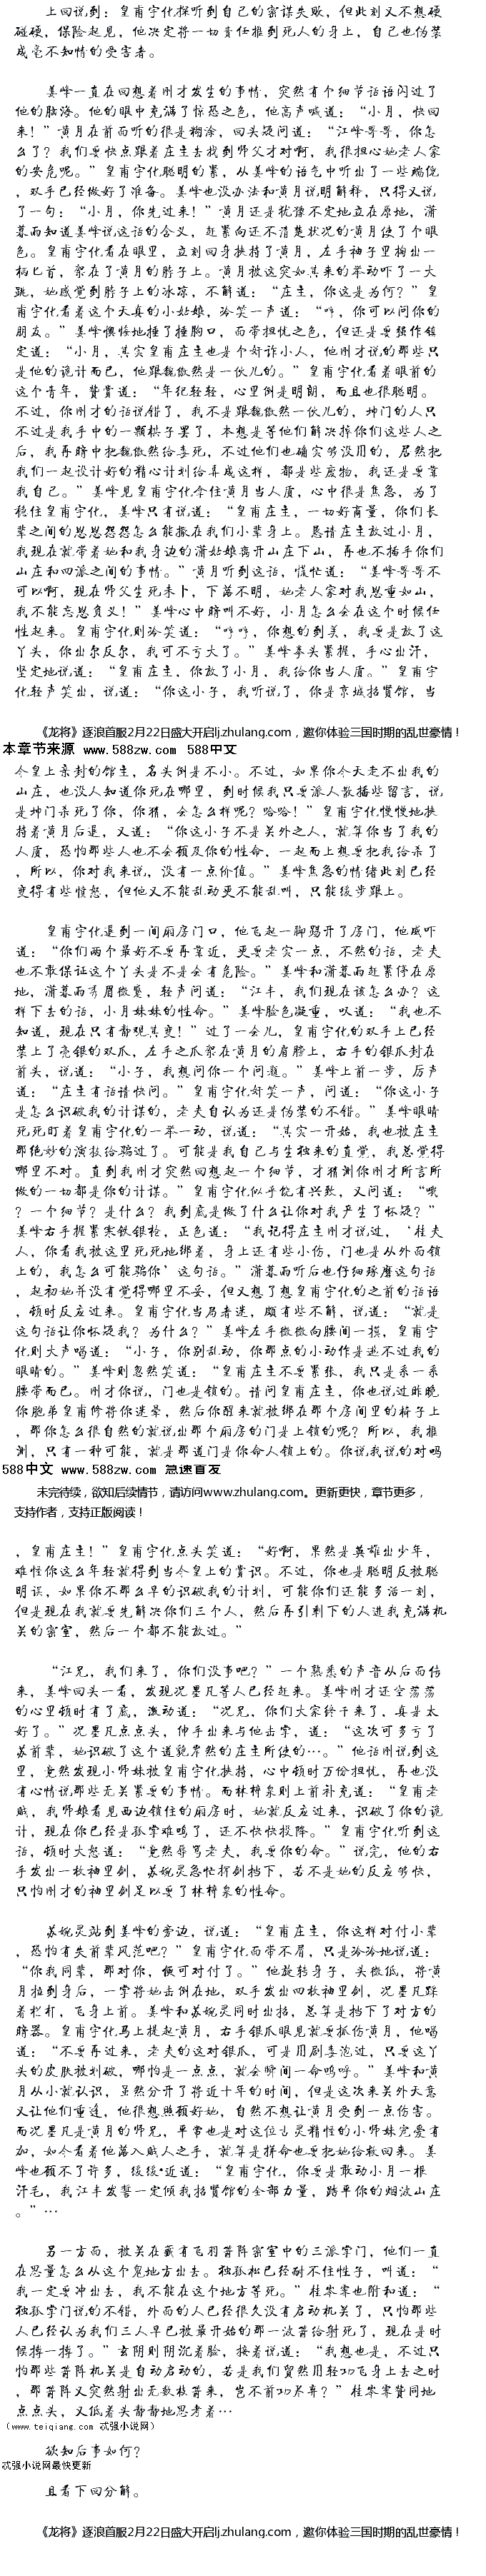 上回说到：皇甫宇化探听到自己的密谋失败，但此刻又不想硬
碰硬，保险起见，他决定将一切责任推到死人的身上，自己也伪装
成毫不知情的受害者。
姜峰一直在回想着刚才发生的事情，突然有个细节话语闪过了
他的脑海。他的眼中充满了惊恐之色，他高声喊道：“小月，快回
来！”黄月在前面听的很是糊涂，回头疑问道：“江峰哥哥，你怎
么了？我们要快点跟着庄主去找到师父才对啊，我很担心她老人家
的安危呢。”皇甫宇化聪明的紧，从姜峰的语气中听出了一些端倪
，双手已经做好了准备。姜峰也没办法和黄月说明解释，只得又说
了一句：“小月，你先过来！”黄月还是犹豫不定地立在原地，潇
暮雨知道姜峰说这话的含义，赶紧向还不清楚状况的黄月使了个眼
色。皇甫宇化看在眼里，立刻回身扶持了黄月，左手袖子里掏出一
柄匕首，架在了黄月的脖子上。黄月被这突如其来的举动吓了一大
跳，她感觉到脖子上的冰凉，不解道：“庄主，你这是为何？”皇
甫宇化看着这个天真的小姑娘，冷笑一声道：“哼，你可以问你的
朋友。”姜峰懊恼地捶了捶胸口，面带担忧之色，但还是要强作镇
定道：“小月，其实皇甫庄主也是个奸诈小人，他刚才说的那些只
是他的诡计而已，他跟魏傲然是一伙儿的。”皇甫宇化看着眼前的
这个青年，赞赏道：“年纪轻轻，心里倒是明朗，而且也很聪明。
不过，你刚才的话说错了，我不是跟魏傲然一伙儿的，坤门的人只
不过是我手中的一颗棋子罢了，本想是等他们解决掉你们这些人之
后，我再暗中把魏傲然给毒死，不过他们也确实够没用的，居然把
我们一起设计好的精心计划给弄成这样，都是些废物，我还是要靠
我自己。”姜峰见皇甫宇化牵住黄月当人质，心中很是焦急，为了
稳住皇甫宇化，姜峰只有说道：“皇甫庄主，一切好商量，你们长
辈之间的恩恩怨怨怎么能撒在我们小辈身上。恳请庄主放过小月，
我现在就带着她和我身边的潇姑娘离开山庄下山，再也不插手你们
山庄和四派之间的事情。”黄月听到这话，慌忙道：“姜峰哥哥不
可以啊，现在师父生死未卜，下落不明，她老人家对我恩重如山，
我不能忘恩负义！”姜峰心中暗叫不好，小月怎么会在这个时候任
性起来。皇甫宇化则冷笑道：“哼哼，你想的到美，我要是放了这
丫头，你出尔反尔，我可不亏大了。”姜峰拳头紧握，手心出汗，
坚定地说道：“皇甫庄主，你放了小月，我给你当人质。”皇甫宇
化轻声笑出，说道：“你这小子，我听说了，你是京城招贤馆，当
《龙将》逐浪首服2月22日盛大开启lj.zhulang.com，邀你体验三国时期的乱世豪情！
本章节来源 www.588zw.com 588中文
今皇上亲封的馆主，名头倒是不小。不过，如果你今天走不出我的
山庄，也没人知道你死在哪里，到时候我只要派人散播些留言，说
是坤门杀死了你，你猜，会怎么样呢？哈哈！”皇甫宇化慢慢地扶
持着黄月后退，又道：“你这小子不是关外之人，就算你当了我的
人质，恐怕那些人也不会顾及你的性命，一起而上想要把我给杀了
，所以，你对我来说，没有一点价值。”姜峰焦急的情绪此刻已经
变得有些愤怒，但他又不能乱动更不能乱叫，只能缓步跟上。
皇甫宇化退到一间厢房门口，他飞起一脚踢开了房门，他威吓
道：“你们两个最好不要再靠近，更要老实一点，不然的话，老夫
也不敢保证这个丫头是不是会有危险。”姜峰和潇暮雨赶紧停在原
地，潇暮雨秀眉微蹙，轻声问道：“江丰，我们现在该怎么办？这
样下去的话，小月妹妹的性命。”姜峰脸色凝重，叹道：“我也不
知道，现在只有静观其变！”过了一会儿，皇甫宇化的双手上已经
装上了亮银的双爪，左手之爪架在黄月的肩膀上，右手的银爪封在
前头，说道：“小子，我想问你一个问题。”姜峰上前一步，厉声
道：“庄主有话请快问。”皇甫宇化奸笑一声，问道：“你这小子
是怎么识破我的计谋的，老夫自认为还是伪装的不错。”姜峰眼睛
死死盯着皇甫宇化的一举一动，说道：“其实一开始，我也被庄主
那绝妙的演技给骗过了。可能是我自己与生独来的直觉，我总觉得
哪里不对。直到我刚才突然回想起一个细节，才猜测你刚才所言所
做的一切都是你的计谋。”皇甫宇化似乎饶有兴致，又问道：“哦
？一个细节？是什么？我到底是做了什么让你对我产生了怀疑？”
姜峰右手握紧寒铁银枪，正色道：“我记得庄主刚才说过，‘桂夫
人，你看我被这里死死地绑着，身上还有些小伤，门也是从外面锁
上的，我怎么可能骗你’这句话。”潇暮雨听后也仔细琢磨这句话
，起初她并没有觉得哪里不妥，但又想了想皇甫宇化的之前的话语
，顿时反应过来。皇甫宇化当局者迷，颇有些不解，说道：“就是
这句话让你怀疑我？为什么？”姜峰左手微微向腰间一摸，皇甫宇
化则大声喝道：“小子，你别乱动，你那点的小动作是逃不过我的
眼睛的。”姜峰则忽然笑道：“皇甫庄主不要紧张，我只是系一系
腰带而已。刚才你说，门也是锁的。请问皇甫庄主，你也说过昨晚
你胞弟皇甫修将你迷晕，然后你醒来就被绑在那个房间里的椅子上
，那你怎么很自然的就说出那个厢房的门是上锁的呢？所以，我推
测，只有一种可能，就是那道门是你命人锁上的。你说我说的对吗
588中文 www.588zw.com 急速首发
未完待续，欲知后续情节，请访问www.zhulang.com。更新更快，章节更多，
支持作者，支持正版阅读！
，皇甫庄主！”皇甫宇化点头笑道：“好啊，果然是英雄出少年，
难怪你这么年轻就得到当今皇上的赏识。不过，你也是聪明反被聪
明误，如果你不那么早的识破我的计划，可能你们还能多活一刻，
但是现在我就要先解决你们三个人，然后再引剩下的人进我充满机
关的密室，然后一个都不能放过。”
“江兄，我们来了，你们没事吧？”一个熟悉的声音从后面传
来，姜峰回头一看，发现况墨凡等人已经赶来。姜峰刚才还空荡荡
的心里顿时有了底，激动道：“况兄，你们大家终于来了，真是太
好了。”况墨凡点点头，伸手出来与他击掌，道：“这次可多亏了
苏前辈，她识破了这个道貌岸然的庄主所使的…。”他话刚说到这
里，竟然发现小师妹被皇甫宇化扶持，心中顿时万份担忧，再也没
有心情说那些无关紧要的事情。而林梓泉则上前补充道：“皇甫老
贼，我师娘看见西边锁住的厢房时，她就反应过来，识破了你的诡
计，现在你已经是孤掌难鸣了，还不快快投降。”皇甫宇化听到这
话，顿时大怒道：“竟然辱骂老夫，我要你的命。”说完，他的右
手发出一枚袖里剑，苏婉灵急忙挥剑挡下，若不是她的反应够快，
只怕刚才的袖里剑足以要了林梓泉的性命。
苏婉灵站到姜峰的旁边，说道：“皇甫庄主，你这样对付小辈
，恐怕有失前辈风范吧？”皇甫宇化面带不屑，只是冷冷地说道：
“你我同辈，那对你，便可对付了。”他旋转身子，头微低，将黄
月拉到身后，一掌将她击倒在地，双手发出四枚袖里剑，况墨凡踩
着栏杆，飞身上前。姜峰和苏婉灵同时出招，总算是挡下了对方的
暗器。皇甫宇化马上提起黄月，右手银爪眼见就要抓伤黄月，他喝
道：“不要再过来，老夫的这对银爪，可是用剧毒泡过，只要这丫
头的皮肤被划破，哪怕是一点点，就会瞬间一命呜呼。”姜峰和黄
月从小就认识，虽然分开了将近十年的时间，但是这次来关外天意
又让他们重逢，他很想照顾好她，自然不想让黄月受到一点伤害。
而况墨凡是黄月的师兄，早常也是对这位古灵精怪的小师妹宠爱有
加，如今看着他落入贼人之手，就算是拼命也要把她给救回来。姜
峰也顾不了许多，缓缓•近道：“皇甫宇化，你要是敢动小月一根
汗毛，我江丰发誓一定倾我招贤馆的全部力量，踏平你的烟波山庄
。”…
另一方面，被关在藏有飞羽箭阵密室中的三派掌门，他们一直
在思量怎么从这个鬼地方出去。独孤松已经耐不住性子，叫道：“
我一定要冲出去，我不能在这个地方等死。”桂岑零也附和道：“
独孤掌门说的不错，外面的人已经很久没有启动机关了，只怕那些
人已经认为我们三人早已被最开始的那一波箭给射死了，现在是时
候搏一搏了。”玄阴则阴沉着脸，接着说道：“我想也是，不过只
怕那些箭阵机关是自动启动的，若是我们贸然用轻功飞身上去之时
，那箭阵又突然射出无数枚箭来，岂不前功尽弃？”桂岑零赞同地
点点头，又低着头静静地思考着…
（www.teiqiang.com 忒强小说网）
欲知后事如何？
忒强小说网最快更新
且看下回分解。
《龙将》逐浪首服2月22日盛大开启lj.zhulang.com，邀你体验三国时期的乱世豪情！